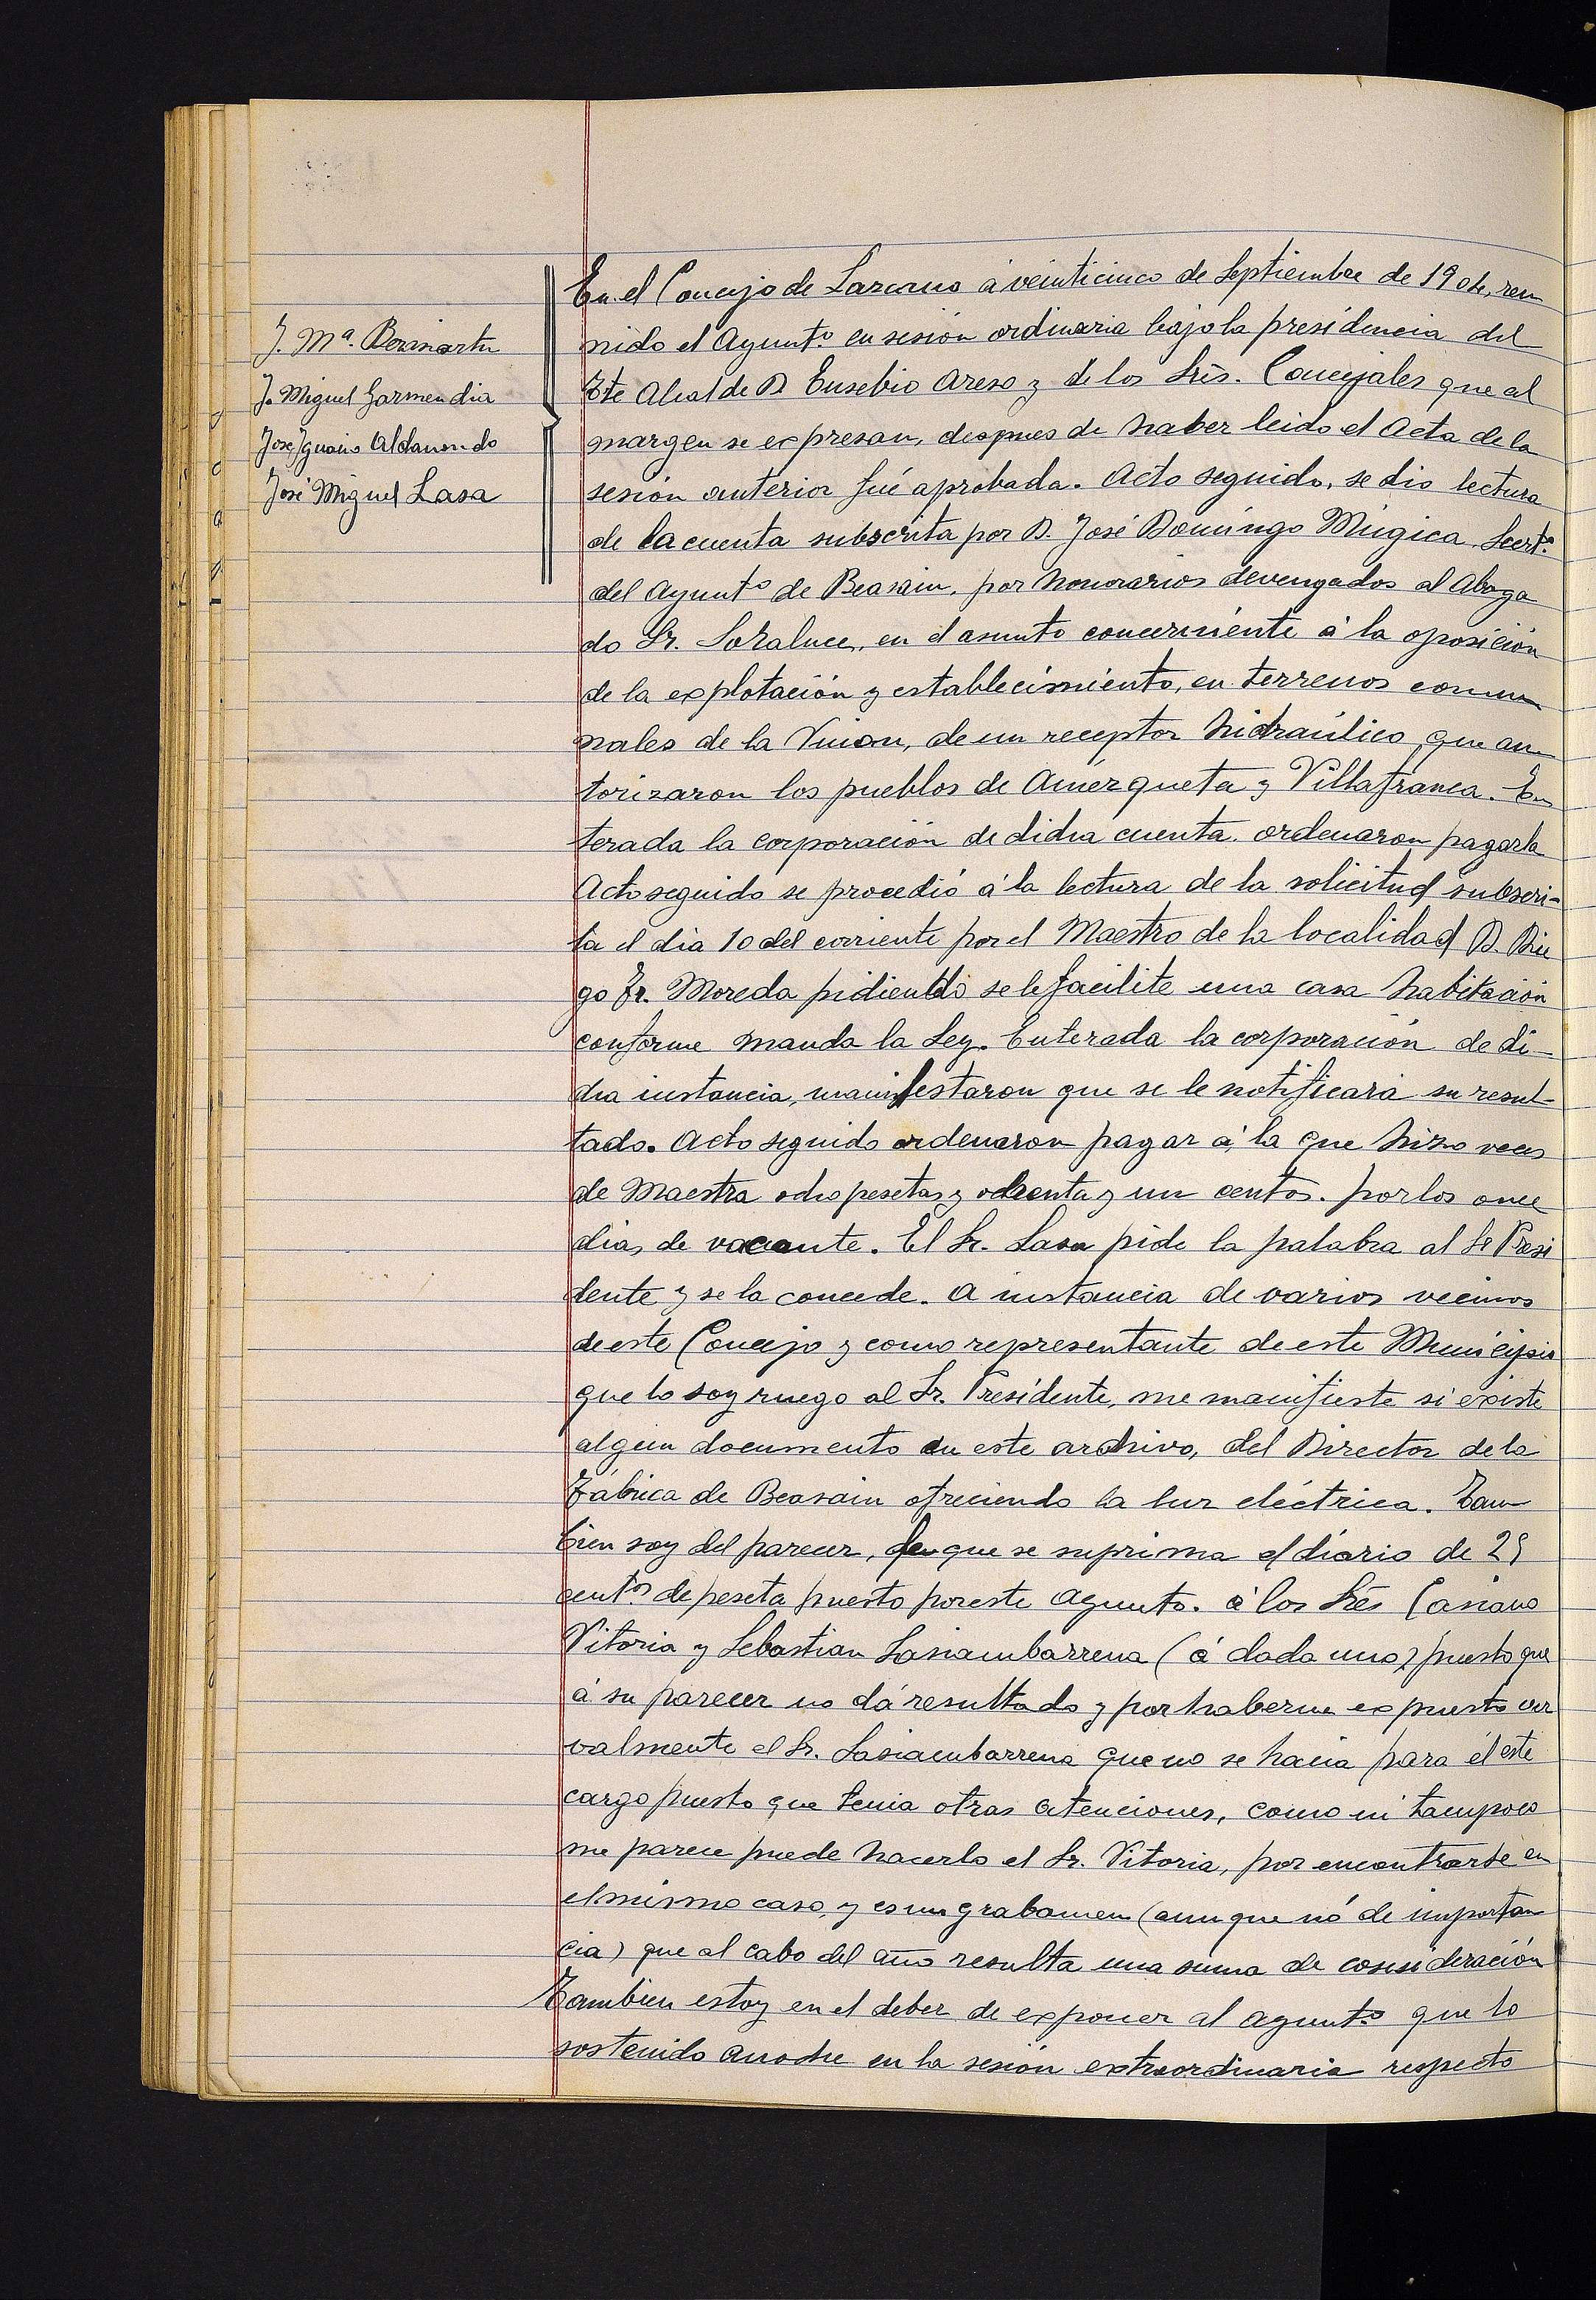 J. Mª. Berasartu
J. Miguel Garmendia
José Ignacio Aldanondo
José Miguel Lasa
En el Concejo de Lazcano á veinticinco de Septiembre de 1904, reu
nido el Ayuntº en sesión ordinaria bajo la presidencia del
Tte Alcalde D Eusebio Areso y de los Srés. Concejales que al
margen se expresan, despues de haber leido el Acta de la
sesión anterior fué aprobada. Acto seguido, se dio lectura
de la cuenta subscrita por D. José Domingo Múgica, Secrtº
del Ayuntº de Beasain, por honorarios devengados al Aboga
do Sr. Soraluce, en el asunto concerniente á la oposición
de la explotación y establecimiento, en terrenos comu
nales de la Union, de un receptor hidraúlico, que au
torizaron los pueblos de Amézqueta y Villafranca. En
terada la corporación de dicha cuenta. ordenaron pagarla
Acto seguido se procedió á la lectura de la solicitud subscri-
ta el dia 10 del corriente por el Maestro de la localidad D. Die
go Fr. Moreda pidiendo se le facilite una casa habitación
conforme manda la Ley. Enterada la corporación de di-
cha instancia, manifestaron que se le notificará su resul-
tado. Acto seguido ordenaron pagar á la que hizo veces
de Maestra ocho pesetas y ochenta y un centos. por los once
dias de vacante. El Sr. Lasa pide la palabra al Sr Presi
dente y se la concede. A instancia de varios vecinos
de este Concejo y como representante de este Municipio
que lo soy ruego al Sr. Presidente, me manifieste si existe
algun documento en este archivo, del Director de la
Fábrica de Beasain ofreciendo la luz eléctrica. Tam
bien soy del parecer, de que se suprima el diario de 25
centos de peseta puesto por este Ayunto. á los Srés Casiano
Vitoria y Sebastian Lasiambarrena (á cada uno) puesto que
á su parecer no dá resultado y por haberme expuesto ver
valmente el Sr. Lasiambarrena que no se hacia para él este
cargo puesto que tenia otras atenciones, como ni tampoco
me parece puede hacerlo el Sr. Vitoria, por encontrarse en
el mismo caso, y es un grabamen (aunque nó de importan
cia) que al cabo del año resulta una suma de cosideración
Tambien estoy en el deber de exponer al Ayuntº que lo
sostenido anoche en la sesión extraordinaria respecto